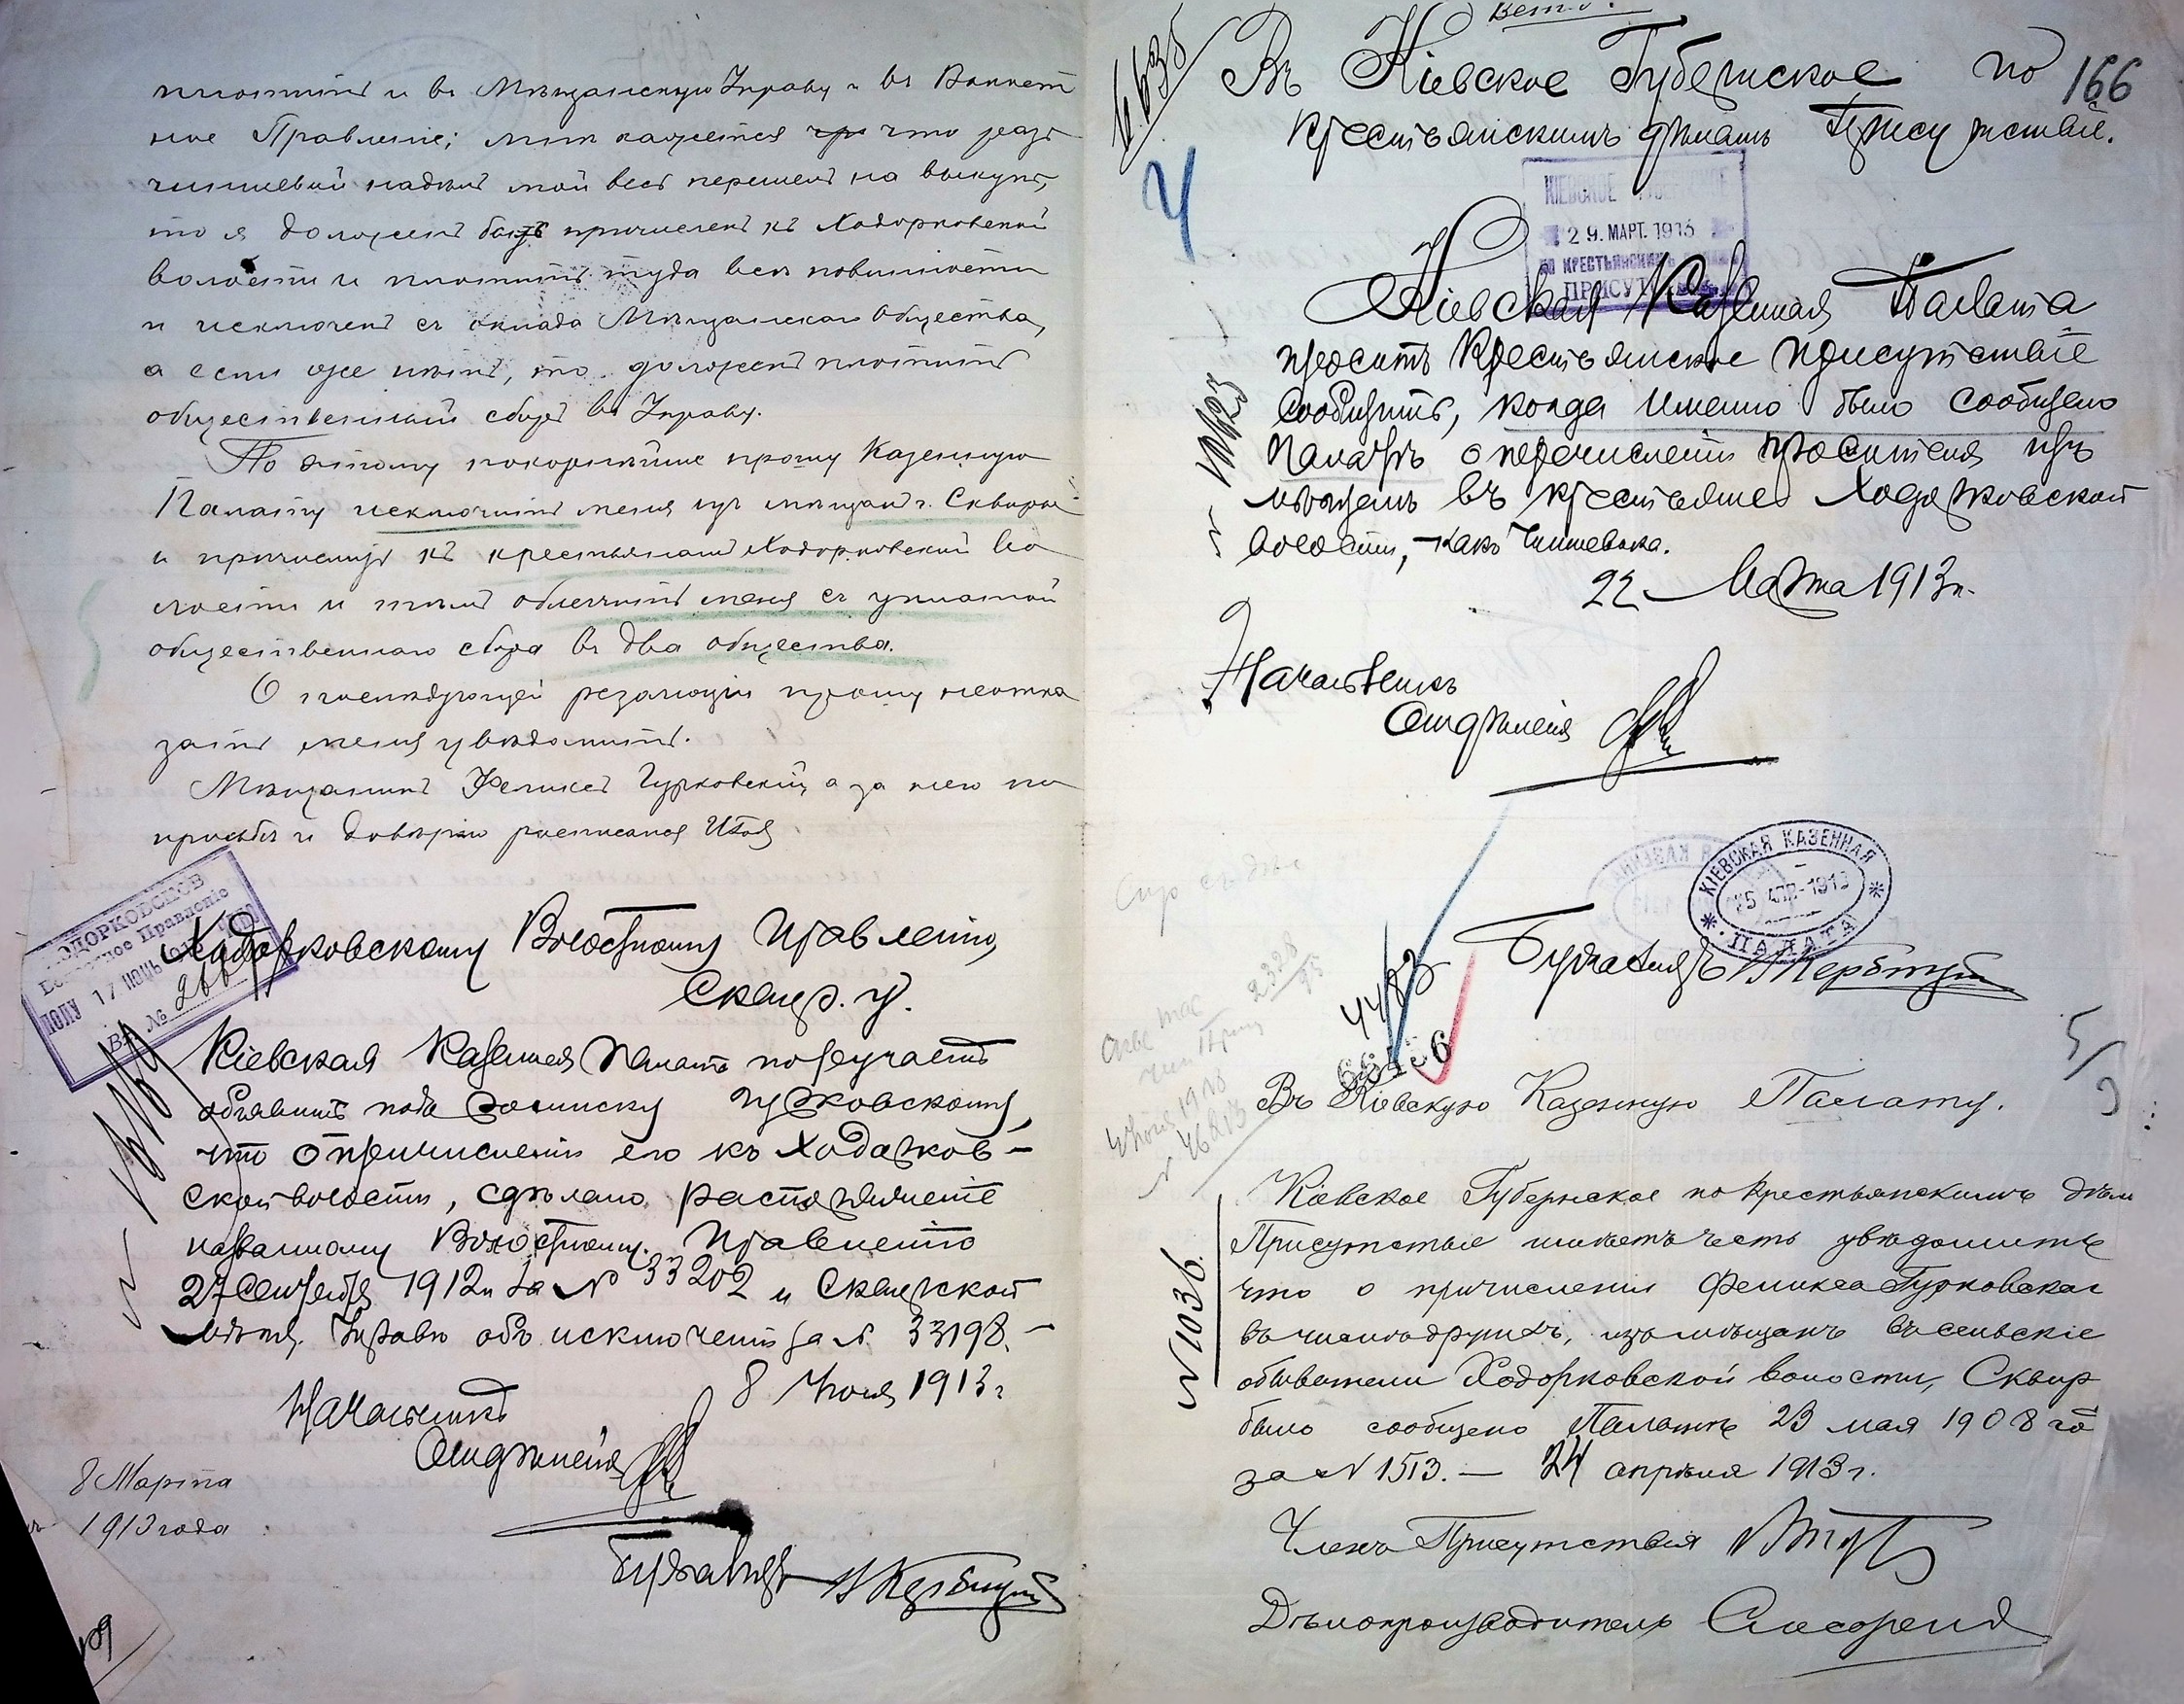 платить и въ Мѣщанскую Управу и въ Волост
ное Правленіе; мнѣ кажется что разъ
чиншевый надѣлъ мой весь перешелъ на выкупъ,
то я долженъ быть причисленъ къ Ходорковской
волости и платить туда всѣ повинности
и исключенъ съ оклада Мѣщанскаго Общества,
а если же нѣтъ, то долженъ платить
общественный сборъ въ Управу.
По этому покорнѣйше прошу Казенную
Палату исключить меня изъ мѣщанъ г. Сквиры
и причислить къ крестьянамъ Ходорковской во
лости и тѣмъ облегчить меня съ уплатой
общественнаго сбора въ два общества.
О послѣдующей резолюціи прошу неотка
зать меня увѣдомить.
Мѣщанинъ Феликсъ Гурковскій, а за него по
просьбѣ и довѣрію расписался
ХОДОРКОВСКОЕ
Волостное Правленіе
ПОЛУ 17 1913
Вх. №
Ходорковскому Волостному Правленію,
Сквир. у.
Кіевская Казенная Палата поручаетъ
объявить подъ росписку Гурковскому,
что о причисленіи его къ Ходорков-
ской волости, сдѣлано распоряженіе
названному Волостному Правленію
27 Сентября 1912 г. за № 33202 и Сквирской
мѣщ. Управѣ объ исключеніи за № 33198.
8 Іюня 1913 г
Начальникъ
Отдѣленія
8 Марта
1913 года
Бухгалтеръ
Въ Кіевское Губернское по
166
крестьянскимъ дѣламъ Присутствіе.
КІЕВСКОЕ
29. МАРТ. 1913
ПО КРЕСТЬЯНСКИМЪ
ПРИСУТ
Кіевская Казенная Палата
проситъ Крестьянское Присутствіе
сообщить, когда именно было сообщено
Палатѣ о перечисленіи просителя изъ
мѣщанъ въ крестьяне Ходорковской
волости, какъ чиншевика.
22 Марта 1913 г.
Начальникъ
Отдѣленія
КІЕВСКАЯ КАЗЕННАЯ
25 АПР. 1913
ПАЛАТА
Бухгалтеръ
4483
Въ Кіевскую Казенную Палату.
№ 1036.
Кіевское Губернское по крестьянскимъ дѣлам
Присутствіе имѣетъ честь увѣдомить
что о причисленіи Феликса Гурковскаг
въ числѣ другихъ, изъ мѣщанъ въ сельскіе
обыватели Ходорковской волости, Сквир
было сообщено Палатѣ 23 мая 1908 го
за № 1513. — 24 апрѣля 1913 г.
Членъ Присутствія
Дѣлопроизводитель